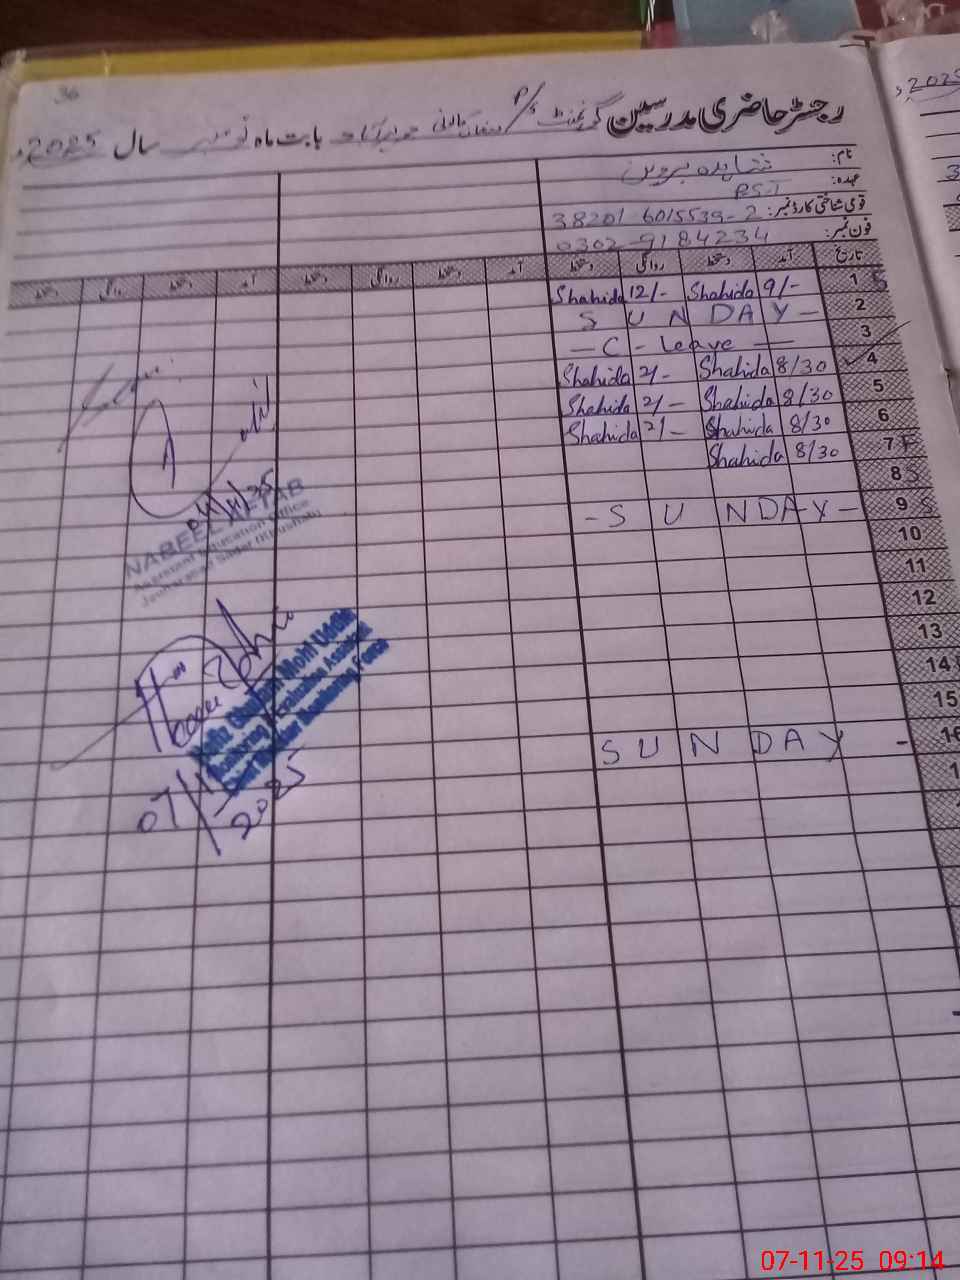 36
رجسٹر حاضری مدرسین گورنمنٹ P/S جوہرآباد بابت ماہ نومبر سال 2025ء
نام: شاہدہ پروین
عہدہ: PST
قومی شناختی کارڈ نمبر: 38201-6015539-2
فون نمبر: 0302-9184234
تاریخ آمد دستخط روانگی دستخط آمد دستخط روانگی دستخط آمد دستخط روانگی دستخط
1 S Shahida 12/- Shahida 9/-
2 S U N D A Y -
3 - C - Leave -
4 Shahida 2/- Shahida 8/30
5 Shahida 2/- Shahida 8/30
6 Shahida 2/- Shahida 8/30
7 F Shahida 8/30
8 S
9 S - S U N D A Y -
10
11
12
13
14
15
16 S U N D A Y -
NABEEL
Assistant Education Officer
Jauharabad
Hafiz Ghulam Mohi Uddin
07/11/2025
2025
07-11-25 09:14